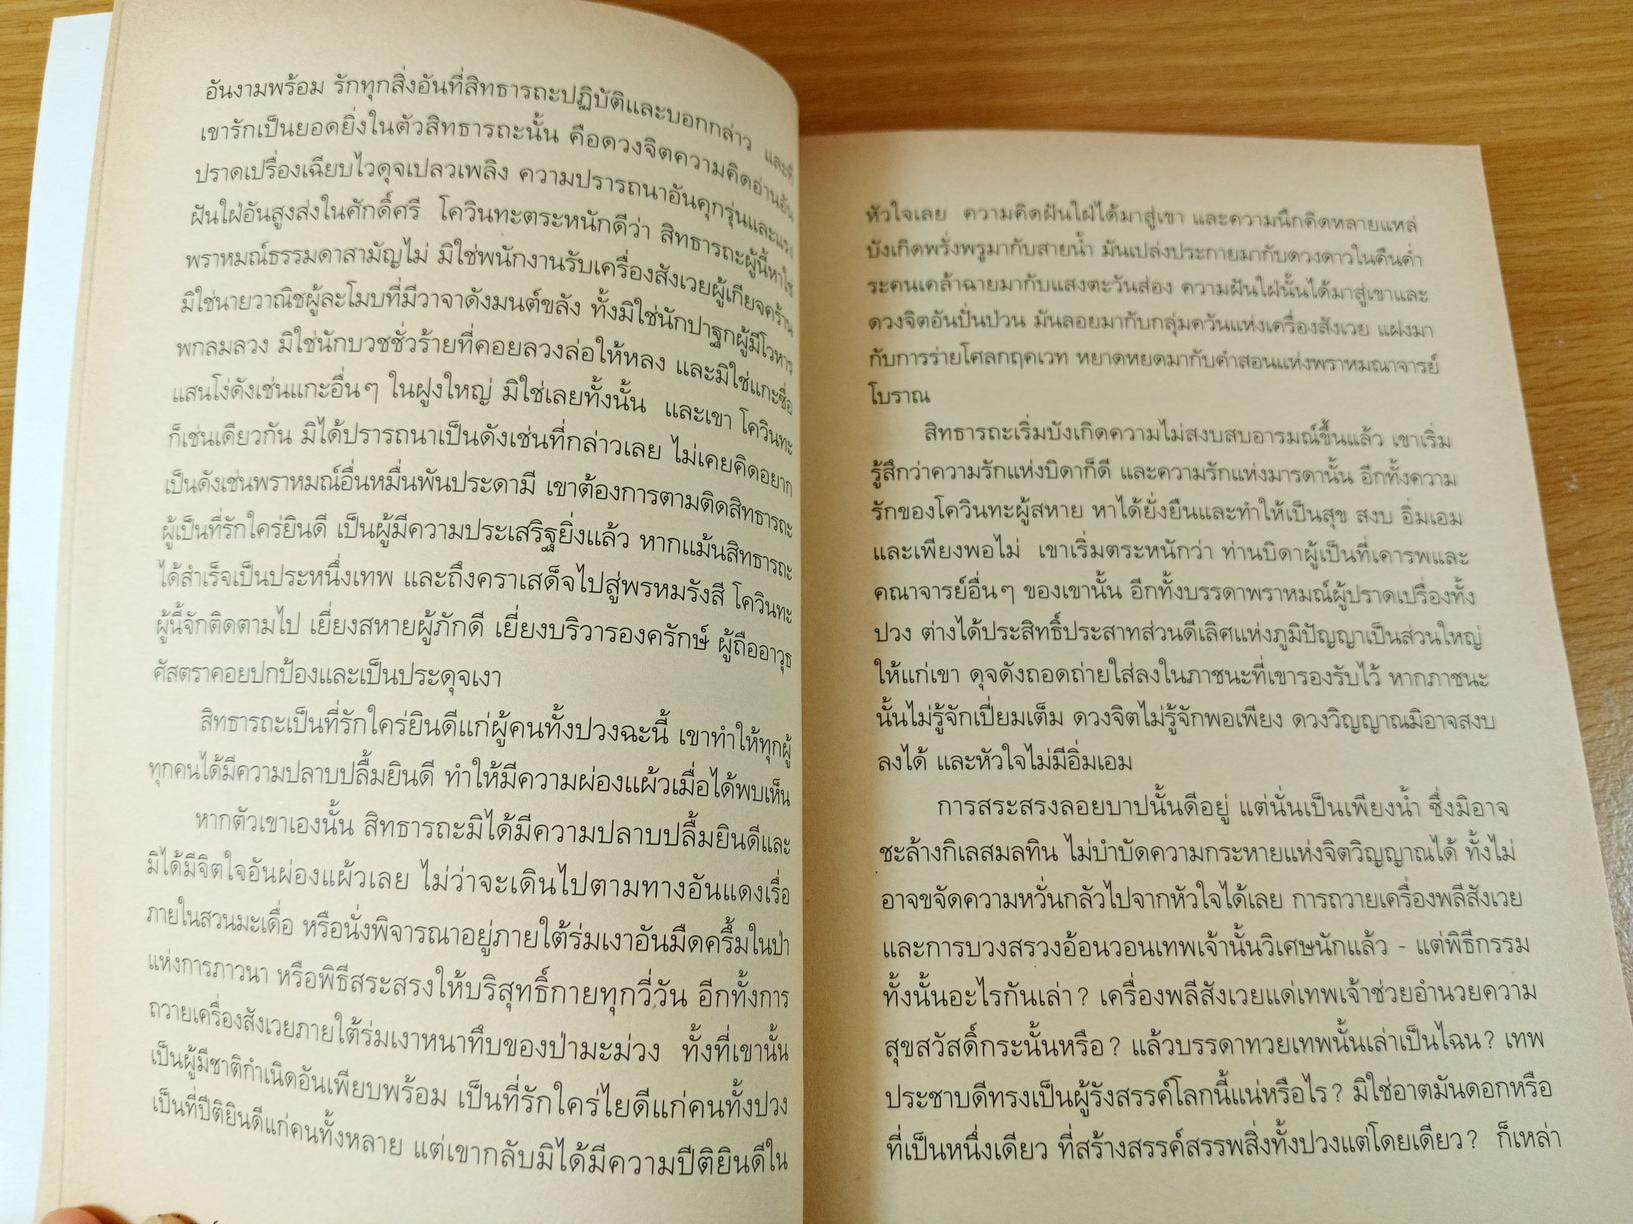 อันงามพร้อม รักทุกสิ่งอันที่สิทธารถะปฏิบัติและบอกกล่าว และที่
เขารักเป็นยอดยิ่งในตัวสิทธารถะนั้น คือดวงจิตความคิดอ่านอัน
ปราดเปรื่องเฉียบไวดุจเปลวเพลิง ความปรารถนาอันคุกรุ่นและแรง
ฝันใฝ่อันสูงส่งในศักดิ์ศรี โควินทะตระหนักดีว่า สิทธารถะผู้นี้หาใช่
พราหมณ์ธรรมดาสามัญไม่ มิใช่พนักงานรับเครื่องสังเวยผู้เกียจคร้าน
มิใช่นายวาณิชผู้ละโมบที่มีวาจาดังมนต์ขลัง ทั้งมิใช่นักปาฐกผู้มีโวหาร
พกลมลวง มิใช่นักบวชชั่วร้ายที่คอยลวงล่อให้หลง และมิใช่แกะซื่อ
แสนโง่ดังเช่นแกะอื่นๆ ในฝูงใหญ่ มิใช่เลยทั้งนั้น และเขา โควินทะ
ก็เช่นเดียวกัน มิได้ปรารถนาเป็นดังเช่นที่กล่าวเลย ไม่เคยคิดอยาก
เป็นดังเช่นพราหมณ์อื่นหมื่นพันประดามี เขาต้องการตามติดสิทธารถะ
ผู้เป็นที่รักใคร่ยินดี เป็นผู้มีความประเสริฐยิ่งแล้ว หากแม้นสิทธารถะ
ได้สำเร็จเป็นประหนึ่งเทพ และถึงคราเสด็จไปสู่พรหมรังสี โควินทะ
ผู้นี้จักติดตามไป เยี่ยงสหายผู้ภักดี เยี่ยงบริวารองครักษ์ ผู้ถืออาวุธ
ศัสตราคอยปกป้องและเป็นประดุจเงา
สิทธารถะเป็นที่รักใคร่ยินดีแก่ผู้คนทั้งปวงฉะนี้ เขาทำให้ทุกผู้
ทุกคนได้มีความปลาบปลื้มยินดี ทำให้มีความผ่องแผ้วเมื่อได้พบเห็น
หากตัวเขาเองนั้น สิทธารถะมิได้มีความปลาบปลื้มยินดีและ
มิได้มีจิตใจอันผ่องแผ้วเลย ไม่ว่าจะเดินไปตามทางอันแดงเรื่อ
ภายในสวนมะเดื่อ หรือนั่งพิจารณาอยู่ภายใต้ร่มเงาอันมืดครึ้มในป่า
แห่งการภาวนา หรือพิธีสระสรงให้บริสุทธิ์กายทุกวี่วัน อีกทั้งการ
ถวายเครื่องสังเวยภายใต้ร่มเงาหนาทึบของป่ามะม่วง ทั้งที่เขานั้น
เป็นผู้มีชาติกำเนิดอันเพียบพร้อม เป็นที่รักใคร่ไยดีแก่คนทั้งปวง
เป็นที่ปีติยินดีแก่คนทั้งหลาย แต่เขากลับมิได้มีความปีติยินดีใน
หัวใจเลย ความคิดฝันใฝ่ได้มาสู่เขา และความนึกคิดหลายแหล่
บังเกิดพรั่งพรูมากับสายน้ำ มันเปล่งประกายมากับดวงดาวในคืนค่ำ
ระคนเคล้าฉายมากับแสงตะวันส่อง ความฝันใฝ่นั้นได้มาสู่เขาและ
ดวงจิตอันปั่นป่วน มันลอยมากับกลุ่มควันแห่งเครื่องสังเวย แฝงมา
กับการร่ายโศลกฤคเวท หยาดหยดมากับคำสอนแห่งพราหมณาจารย์
โบราณ
สิทธารถะเริ่มบังเกิดความไม่สงบสบอารมณ์ขึ้นแล้ว เขาเริ่ม
รู้สึกว่าความรักแห่งบิดาก็ดี และความรักแห่งมารดานั้น อีกทั้งความ
รักของโควินทะผู้สหาย หาได้ยั่งยืนและทำให้เป็นสุข สงบ อิ่มเอม
และเพียงพอไม่ เขาเริ่มตระหนักว่า ท่านบิดาผู้เป็นที่เคารพและ
คณาจารย์อื่นๆ ของเขานั้น อีกทั้งบรรดาพราหมณ์ผู้ปราดเปรื่องทั้ง
ปวง ต่างได้ประสิทธิ์ประสาทส่วนดีเลิศแห่งภูมิปัญญาเป็นส่วนใหญ่
ให้แก่เขา ดุจดังถอดถ่ายใส่ลงในภาชนะที่เขารองรับไว้ หากภาชนะ
นั้นไม่รู้จักเปี่ยมเต็ม ดวงจิตไม่รู้จักพอเพียง ดวงวิญญาณมิอาจสงบ
ลงได้ และหัวใจไม่มีอิ่มเอม
การสระสรงลอยบาปนั้นดีอยู่ แต่นั่นเป็นเพียงน้ำ ซึ่งมิอาจ
ชะล้างกิเลสมลทิน ไม่บำบัดความกระหายแห่งจิตวิญญาณได้ ทั้งไม่
อาจขจัดความหวั่นกลัวไปจากหัวใจได้เลย การถวายเครื่องพลีสังเวย
และการบวงสรวงอ้อนวอนเทพเจ้านั้นวิเศษนักแล้ว - แต่พิธีกรรม
ทั้งนั้นอะไรกันเล่า? เครื่องพลีสังเวยแด่เทพเจ้าช่วยอำนวยความ
สุขสวัสดิ์กระนั้นหรือ? แล้วบรรดาทวยเทพนั้นเล่าเป็นไฉน? เทพ
ประชาบดีทรงเป็นผู้รังสรรค์โลกนี้แน่หรือไร? มิใช่อาตมันดอกหรือ
ที่เป็นหนึ่งเดียว ที่สร้างสรรค์สรรพสิ่งทั้งปวงแต่โดยเดียว? ก็เหล่า